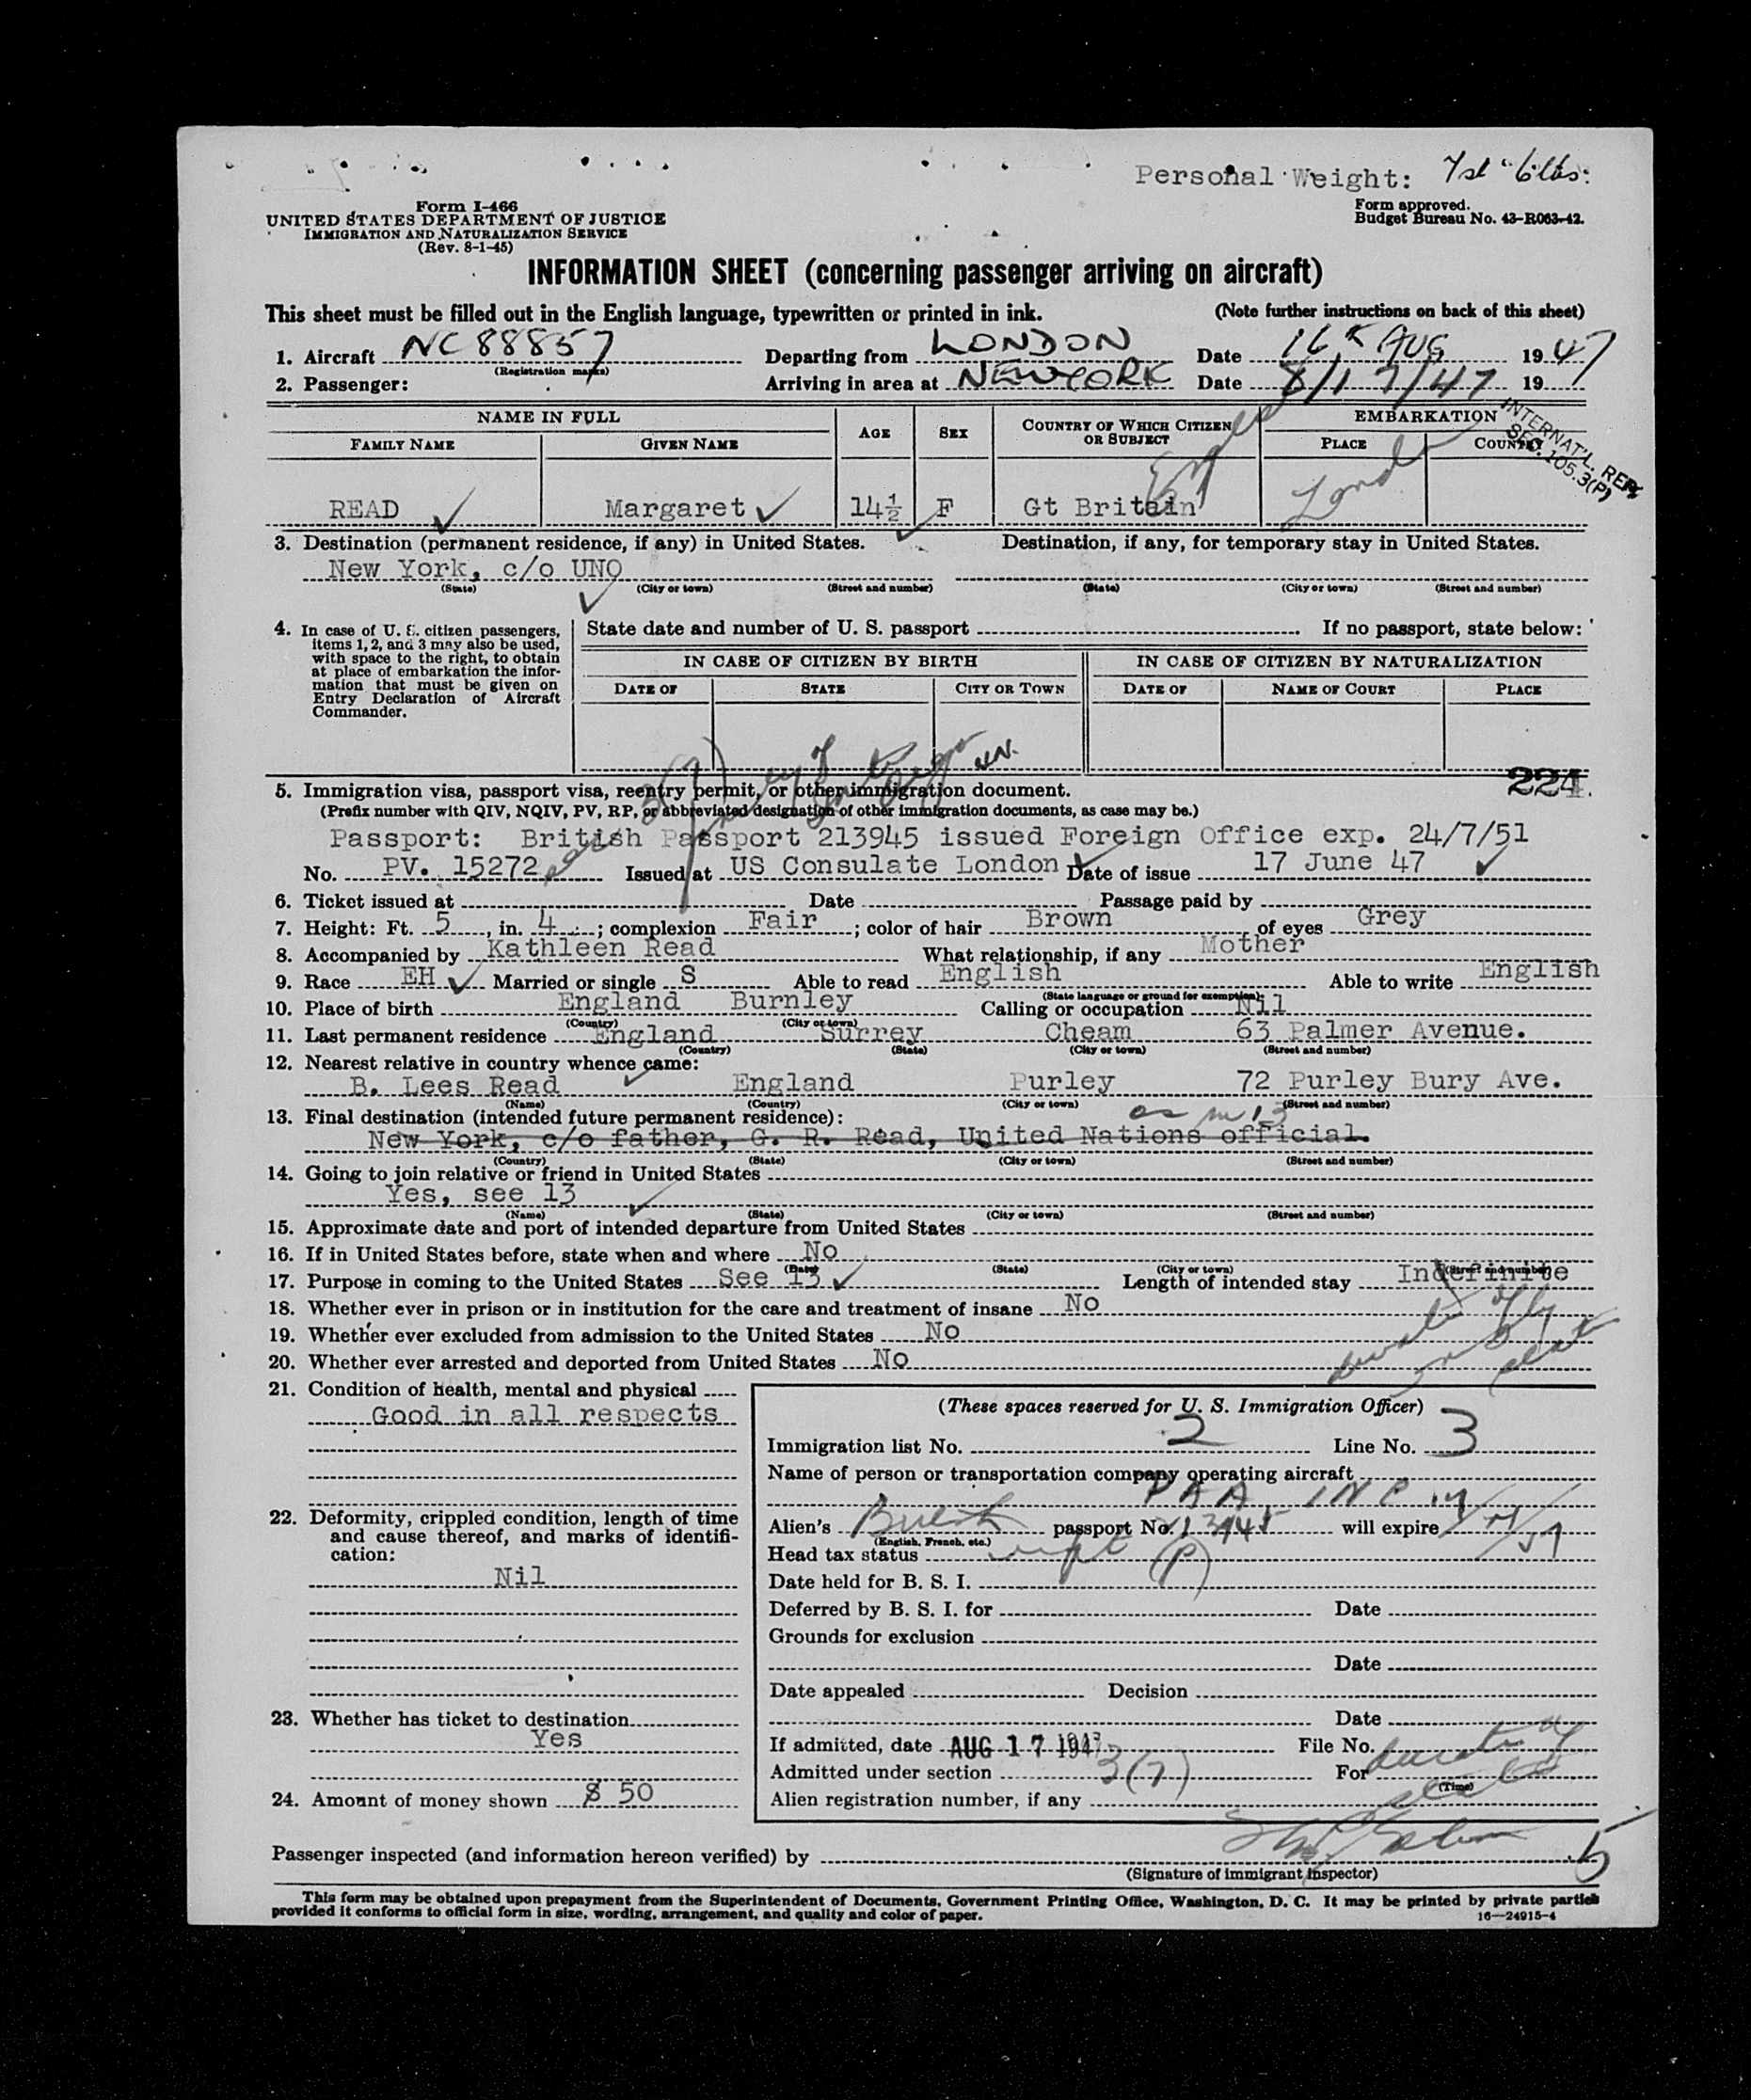 Personal Weight: 7st 6lbs.
Form I-466
UNITED STATES DEPARTMENT OF JUSTICE
IMMIGRATION AND NATURALIZATION SERVICE
(Rev. 8-1-45)
Form approved.
Budget Bureau No. 43-R063-42.
INFORMATION SHEET (concerning passenger arriving on aircraft)
This sheet must be filled out in the English language, typewritten or printed in ink. (Note further instructions on back of this sheet)
1. Aircraft NC88857 Departing from LONDON Date 16th AUG 1947
(Registration marks)
2. Passenger: Arriving in area at NEW YORK Date 8/17/47 19
NAME IN FULL AGE SEX COUNTRY OF WHICH CITIZEN OR SUBJECT EMBARKATION
FAMILY NAME GIVEN NAME PLACE COUNTRY
INTERNAT'L. REP.
SEC. 105.3(P)
READ Margaret 14½ F Gt Britain London
3. Destination (permanent residence, if any) in United States. Destination, if any, for temporary stay in United States.
New York, c/o UNO
(State) (City or town) (Street and number) (State) (City or town) (Street and number)
4. In case of U. S. citizen passengers, items 1, 2, and 3 may also be used, with space to the right, to obtain at place of embarkation the information that must be given on Entry Declaration of Aircraft Commander.
State date and number of U. S. passport If no passport, state below:
IN CASE OF CITIZEN BY BIRTH IN CASE OF CITIZEN BY NATURALIZATION
DATE OF STATE CITY OR TOWN DATE OF NAME OF COURT PLACE
224
5. Immigration visa, passport visa, reentry permit, or other immigration document.
3(7)
(Prefix number with QIV, NQIV, PV, RP, or abbreviated designation of other immigration documents, as case may be.)
Passport: British Passport 213945 issued Foreign Office exp. 24/7/51
No. PV. 15272 Issued at US Consulate London Date of issue 17 June 47
6. Ticket issued at Date Passage paid by
7. Height: Ft. 5, in. 4; complexion Fair; color of hair Brown of eyes Grey
8. Accompanied by Kathleen Read What relationship, if any Mother
9. Race EH Married or single S Able to read English Able to write English
(State language or ground for exemption)
10. Place of birth England Burnley Calling or occupation Nil
(Country) (City or town)
11. Last permanent residence England Surrey Cheam 63 Palmer Avenue.
(Country) (State) (City or town) (Street and number)
12. Nearest relative in country whence came:
B. Lees Read England Purley 72 Purley Bury Ave.
(Name) (Country) (City or town) (Street and number)
13. Final destination (intended future permanent residence):
New York, c/o father, G. R. Read, United Nations official.
(Country) (State) (City or town) (Street and number)
14. Going to join relative or friend in United States
Yes, see 13
(Name) (State) (City or town) (Street and number)
15. Approximate date and port of intended departure from United States
16. If in United States before, state when and where No
(Date) (State) (City or town) (Street and number)
17. Purpose in coming to the United States See 13 Length of intended stay Indefinite
18. Whether ever in prison or in institution for the care and treatment of insane No
19. Whether ever excluded from admission to the United States No
20. Whether ever arrested and deported from United States No
21. Condition of health, mental and physical
Good in all respects
22. Deformity, crippled condition, length of time and cause thereof, and marks of identification:
Nil
23. Whether has ticket to destination
Yes
24. Amount of money shown $ 50
(These spaces reserved for U. S. Immigration Officer)
Immigration list No. 2 Line No. 3
Name of person or transportation company operating aircraft
PAA, INC
Alien's British passport No. 213945 will expire
(English, French, etc.)
Head tax status (P)
Date held for B. S. I.
Deferred by B. S. I. for Date
Grounds for exclusion
Date
Date appealed Decision
Date
If admitted, date AUG 17 1947 File No.
Admitted under section 3(7) For
(Time)
Alien registration number, if any
Passenger inspected (and information hereon verified) by
5
(Signature of immigrant inspector)
This form may be obtained upon prepayment from the Superintendent of Documents, Government Printing Office, Washington, D. C. It may be printed by private parties
provided it conforms to official form in size, wording, arrangement, and quality and color of paper. 16—24915-4